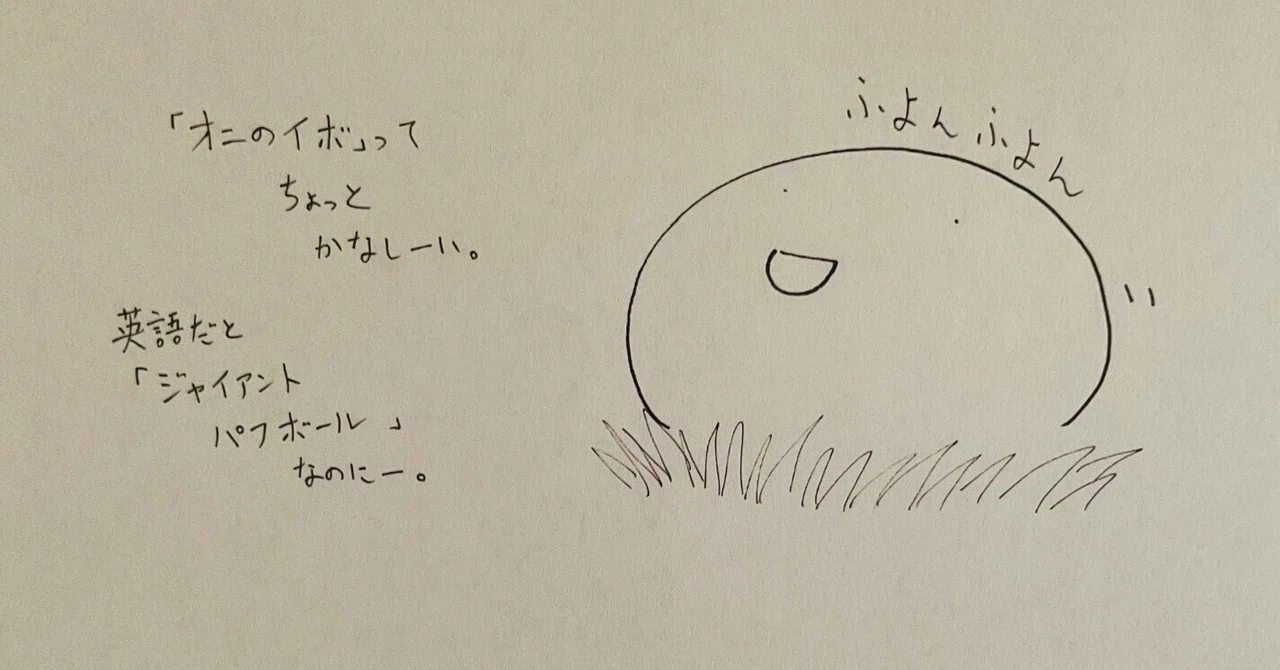 「オニのイボ」って
ちょっと
かなしーい。
英語だと
「ジャイアント
パフボール」
なのにー。
ふよんふよん